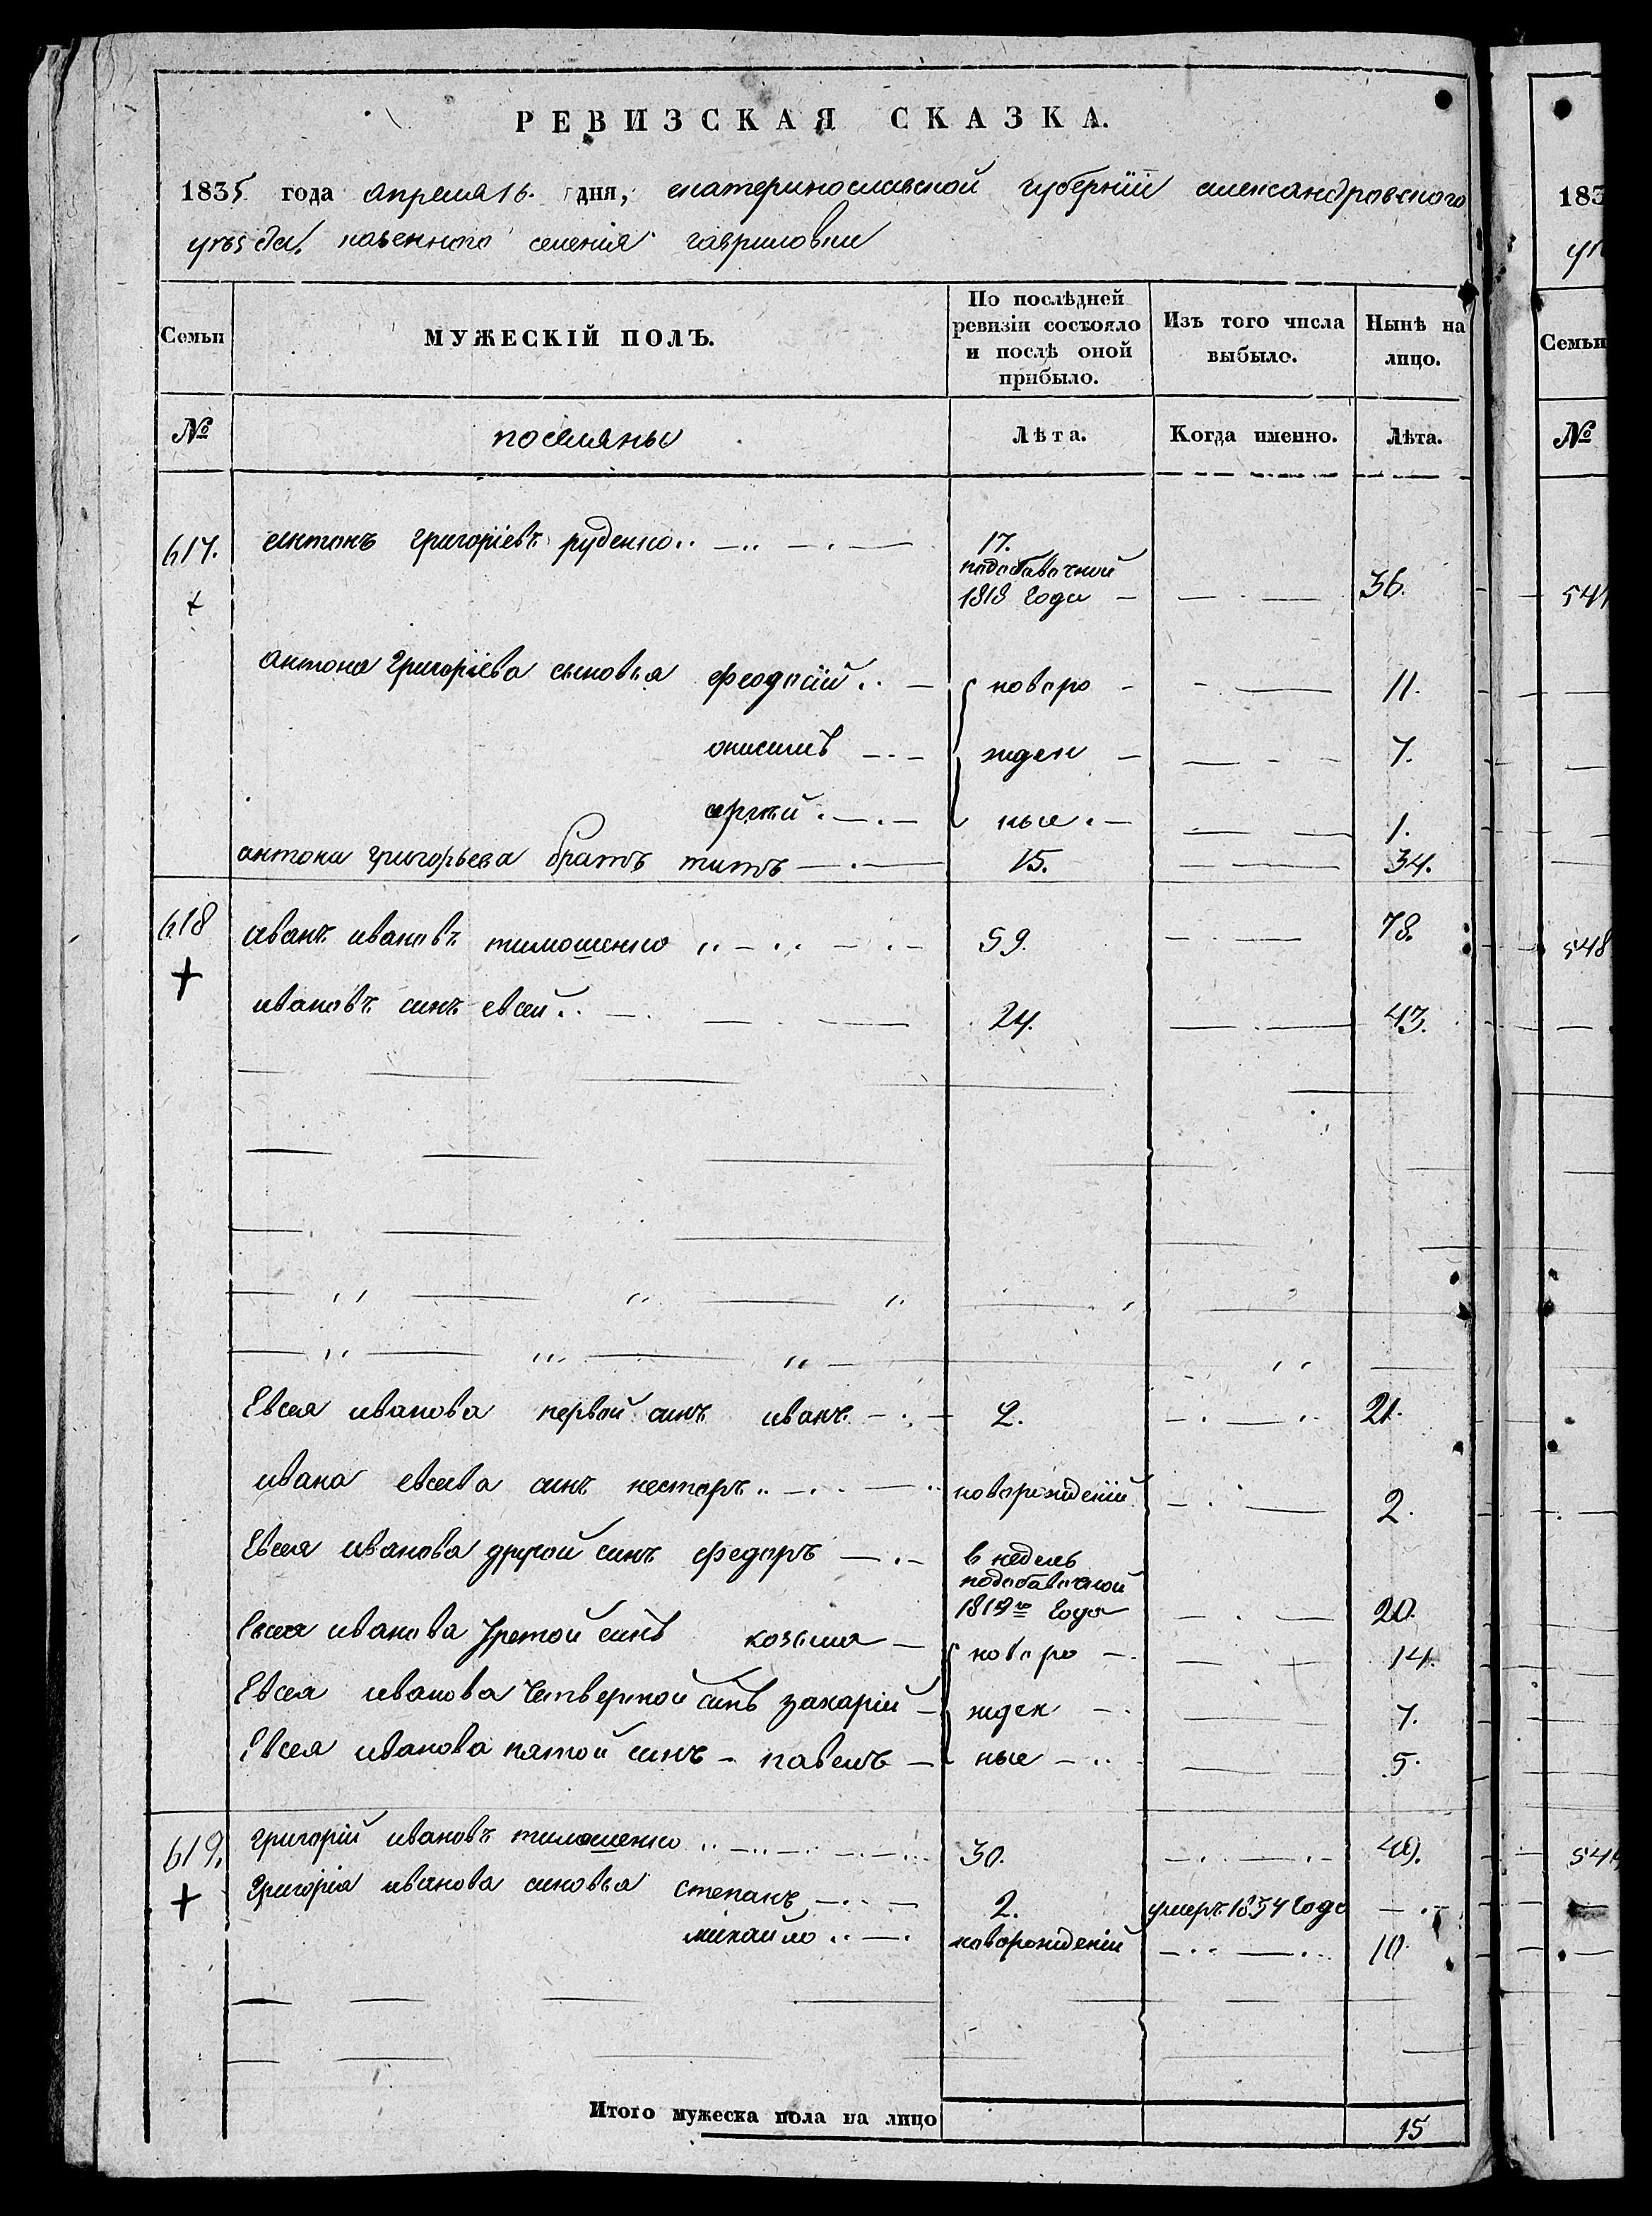 РЕВИЗСКАЯ СКАЗКА.
1835 года апреля 16. дня, екатеринославской губернїи александровского
уѣзда, казенного селенія гавриловки
Семьи
МУЖЕСКІЙ ПОЛЪ.
По послѣдней ревизіи состояло и послѣ оной прибыло.
Изъ того числа выбыло.
Нынѣ на лицо.
№
поселяны
Лѣта.
Когда именно.
Лѣта.
617. антонъ григоріевъ руденко 17. подобавочной 1818 года 36.
антона григоріева сыновья феодосій новоро 11.
онисимъ жден 7.
сергѣй ные 1.
антона григорьева братъ титъ 15. 34.
618 иванъ ивановъ тимошенко 59. 78.
ивановъ синъ евсей 24. 43.
Евсея иванова первой синъ иванъ 2. 21.
ивана евсеева синъ несторъ новорожденій 2.
Евсея иванова другой синъ федоръ 6 недель подобавочной 1819го года 20.
Евсея иванова третой синъ козьма новоро 14.
Евсея иванова четвертой синъ захарій жден 7.
Евсея иванова пятой синъ павелъ ные 5.
619. григорій ивановъ тимошенко 30. 49.
григорія иванова синовья степанъ 2. умеръ 1834 года
михайло новорожденій 10.
Итого мужеска пола на лицо 15
183
Семьи
№
548